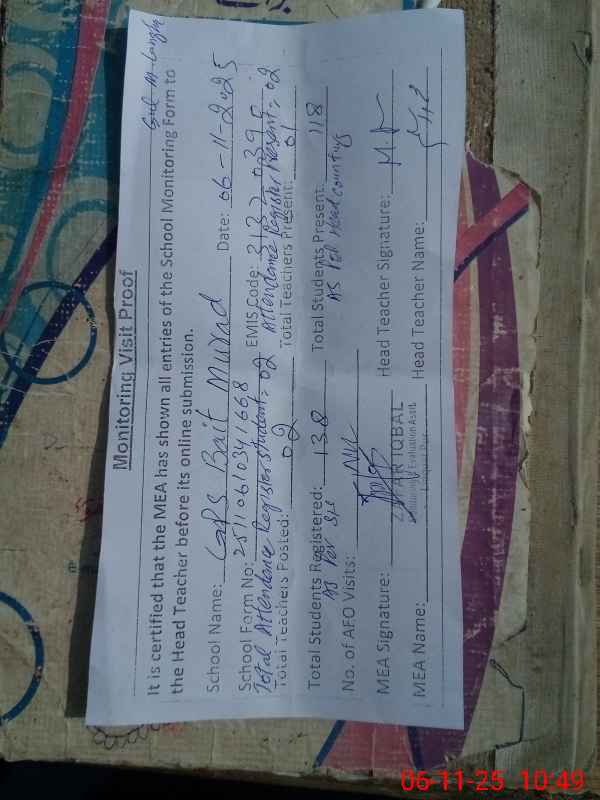 Monitoring Visit Proof
It is certified that the MEA has shown all entries of the School Monitoring Form to
the Head Teacher before its online submission.
School Name: GPS Bait Murad Date: 06-11-2025
School Form No: 25110610341668 EMIS Code:
Total Attendance Register Student: 02 Attendance Register Present: 02
Total Teachers Posted: 02 Total Teachers Present: 01
Total Students Registered: 138 Total Students Present: 118
As Per As Per Head counting
No. of AFO Visits: Nil
MEA Signature: Head Teacher Signature:
IQBAL
Evaluation Asstt.
MEA Name: Head Teacher Name:
06-11-25 10:49